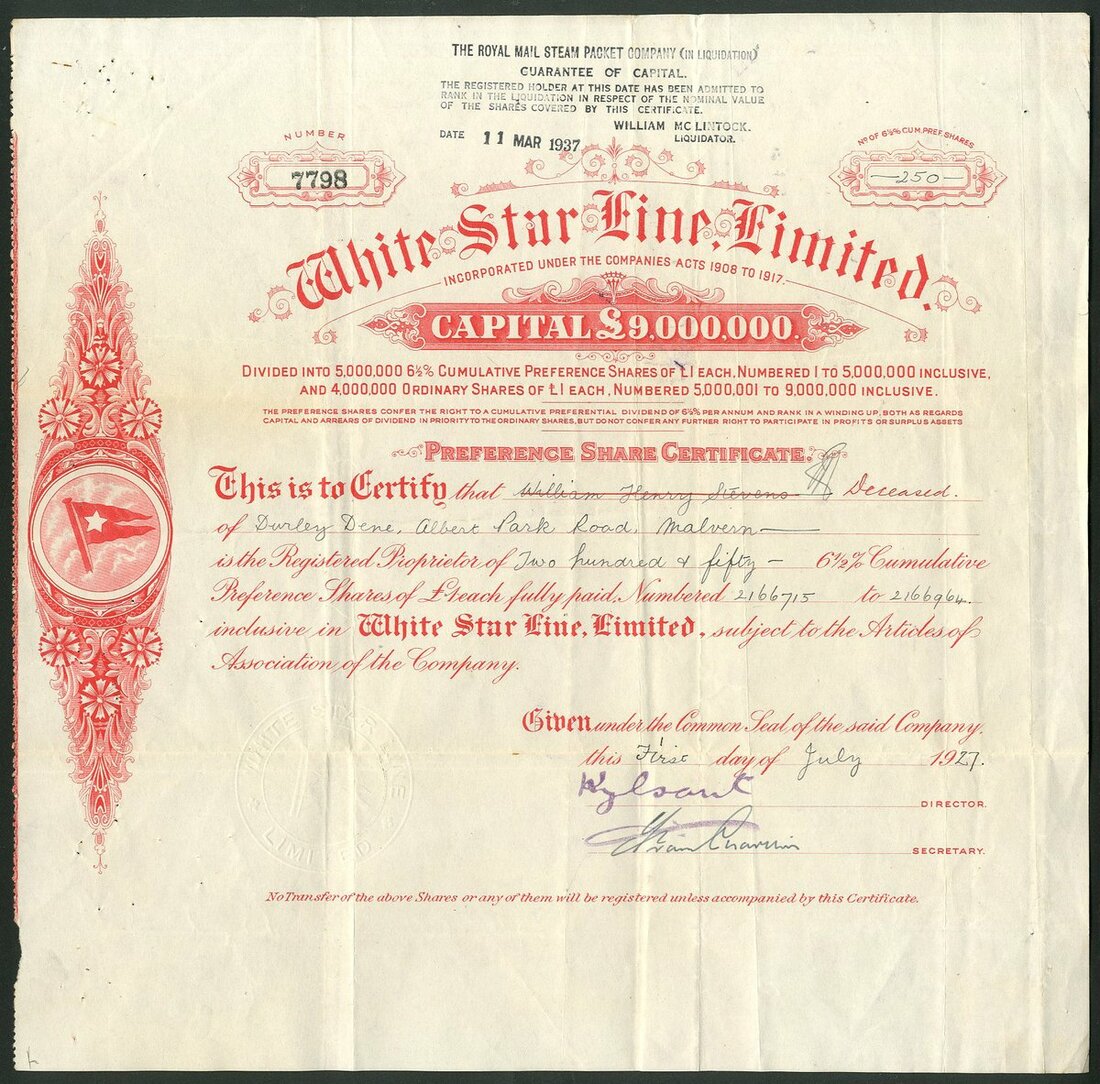 THE ROYAL MAIL STEAM PACKET COMPANY (IN LIQUIDATION)
GUARANTEE OF CAPITAL.
THE REGISTERED HOLDER AT THIS DATE HAS BEEN ADMITTED TO
RANK IN THE LIQUIDATION IN RESPECT OF THE NOMINAL VALUE
OF THE SHARES COVERED BY THIS CERTIFICATE.
WILLIAM MC LINTOCK.
LIQUIDATOR.
DATE 11 MAR 1937
NUMBER
7798
No OF 6½% CUM. PREF. SHARES
250
White Star Line, Limited.
INCORPORATED UNDER THE COMPANIES ACTS 1908 TO 1917.
CAPITAL £9,000,000.
DIVIDED INTO 5,000,000 6½% CUMULATIVE PREFERENCE SHARES OF £1 EACH, NUMBERED 1 TO 5,000,000 INCLUSIVE,
AND 4,000,000 ORDINARY SHARES OF £1 EACH, NUMBERED 5,000,001 TO 9,000,000 INCLUSIVE.
THE PREFERENCE SHARES CONFER THE RIGHT TO A CUMULATIVE PREFERENTIAL DIVIDEND OF 6½% PER ANNUM AND RANK IN A WINDING UP, BOTH AS REGARDS
CAPITAL AND ARREARS OF DIVIDEND IN PRIORITY TO THE ORDINARY SHARES, BUT DO NOT CONFER ANY FURTHER RIGHT TO PARTICIPATE IN PROFITS OR SURPLUS ASSETS
PREFERENCE SHARE CERTIFICATE.
This is to Certify that William Henry Stevens Deceased.
of Durley Dene, Albert Park Road, Malvern
is the Registered Proprietor of Two hundred & fifty 6½% Cumulative
Preference Shares of £1 each fully paid, Numbered 2166715 to 2166964.
inclusive in White Star Line, Limited, subject to the Articles of
Association of the Company.
Given under the Common Seal of the said Company,
this First day of July 1927.
Kylsant
DIRECTOR.
SECRETARY.
WHITE STAR LINE LIMITED
No Transfer of the above Shares or any of them will be registered unless accompanied by this Certificate.